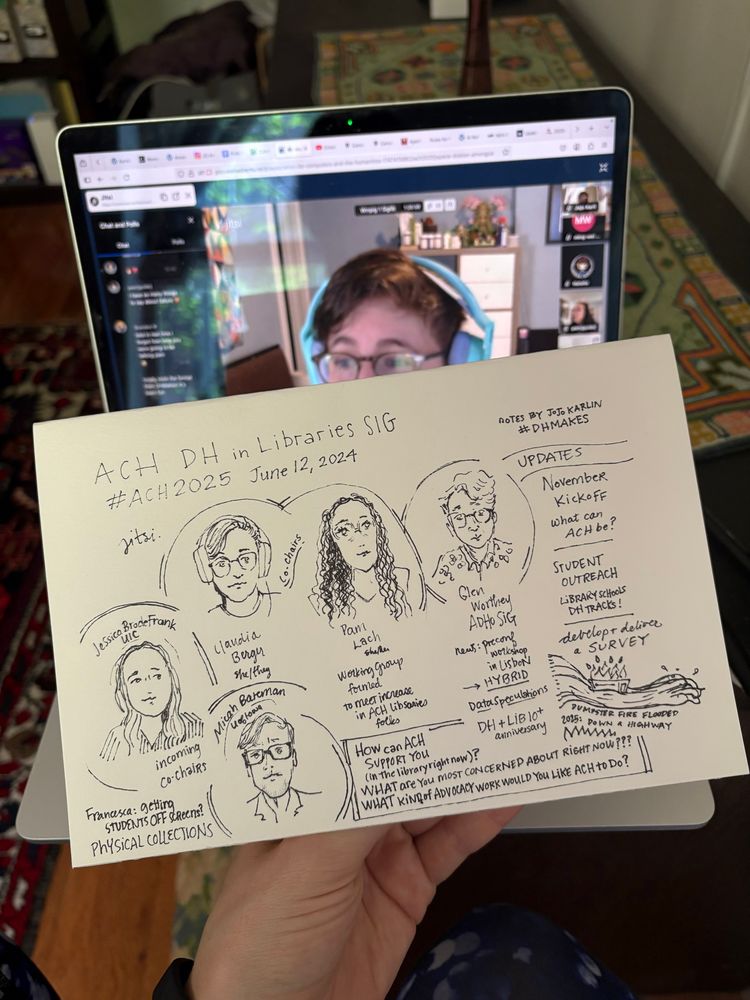 Jitsi
Chat and Polls
Chat
Polls
jitsi
MW
ACH DH in Libraries SIG
#ACH2025 June 12, 2024
NOTES BY JOJO KARLIN
#DHMAKES
jitsi.
CO-CHAIRS
Claudia
Berger
she/they
Pam
Lach
she/her
Working group
formed
to meet increase
in ACH Libraries
folks
Glen
Worthey
ADHO SIG
news: preconf
workshop
in Lisbon
→ HYBRID
Data Speculations
DH + LIB 10+
anniversary
UPDATES
November
Kickoff
what can
ACH be?
STUDENT
OUTREACH
LIBRARY SCHOOLS
DH TRACKS!
develop + deliver
a SURVEY
DUMPSTER FIRE FLOODED
2025: DOWN A HIGHWAY
Jessica BrodeFrank
UIC
Micah Bateman
incoming
co-chairs
Francesca: getting
STUDENTS OFF SCREENS?
PHYSICAL COLLECTIONS
How can ACH
SUPPORT YOU
(in the library right now)?
WHAT are you MOST CONCERNED ABOUT RIGHT NOW???
WHAT KIND of ADVOCACY WORK WOULD YOU LIKE ACH to Do?